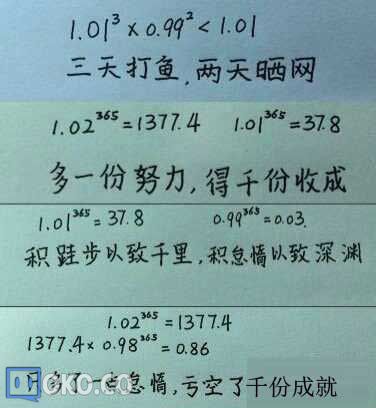 1.01³ × 0.99² < 1.01
三天打鱼，两天晒网
1.02³⁶⁵ = 1377.4 1.01³⁶⁵ = 37.8
多一份努力，得千份收成
1.01³⁶⁵ = 37.8 0.99³⁶⁵ = 0.03.
积跬步以致千里，积怠惰以致深渊
1.02³⁶⁵ = 1377.4
1377.4 × 0.98³⁶⁵ = 0.86
只多了一点怠惰，亏空了千份成就
OKO.CO